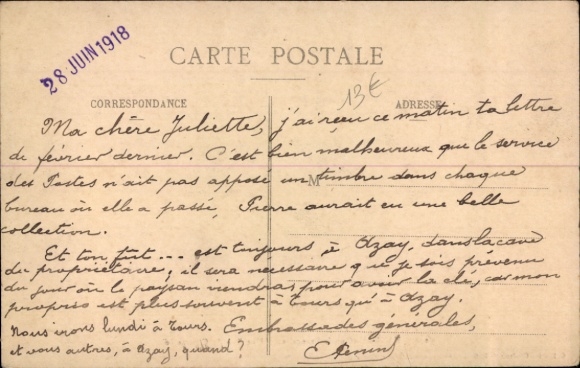 28 JUIN 1918
CARTE POSTALE
13€
CORRESPONDANCE
ADRESSE
Ma chère Juliette, j'ai reçu ce matin ta lettre
de février dernier. C'est bien malheureux que le service
des Postes n'ait pas apposé un timbre dans chaque
M
bureau où elle a passé, Pierre aurait eu une belle
collection.
Et ton fût... est toujours à Azay, dans la cave
du propriétaire; il sera nécessaire que je sois prévenu
du jour où le paysan viendras pour avoir la clé, car mon
proprio est plus souvent à Tours qu'à Azay.
Nous irons lundi à Tours. Embrassades générales,
et vous autres, à Azay, quand?